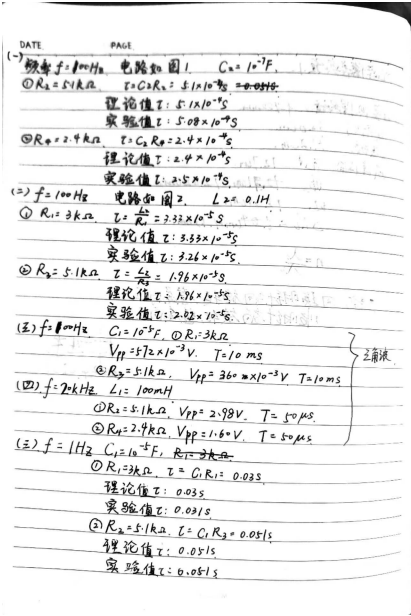 DATE PAGE
(一)
频率 f=100Hz 电路如图1. C₂=10⁻⁷F.
① R₂=5.1kΩ τ=C₂R₂=5.1×10⁻⁴s
理论值τ: 5.1×10⁻⁴s
实验值τ: 5.08×10⁻⁴s
② R₄=2.4kΩ. τ=C₂R₄=2.4×10⁻⁴s
理论值τ: 2.4×10⁻⁴s
实验值τ: 2.5×10⁻⁴s
(二) f=100Hz 电路如图2. L₂=0.1H
① R₁=3kΩ τ=L₂/R₁=3.33×10⁻⁵s
理论值τ: 3.33×10⁻⁵s
实验值τ: 3.26×10⁻⁵s
② R₃=5.1kΩ τ=L₂/R₃=1.96×10⁻⁵s
理论值τ: 1.96×10⁻⁵s
实验值τ: 2.02×10⁻⁵s
(五) f=100Hz C₁=10⁻⁵F, ① R₁=3kΩ
Vpp=572×10⁻³V. T=10ms
② R₃=5.1kΩ, Vpp=360×10⁻³V T=10ms
三角波
(四) f=20kHz L₁=100mH
① R₂=5.1kΩ, Vpp=2.98V. T=50μs
② R₄=2.4kΩ, Vpp=1.60V. T=50μs
(三) f=1Hz C₁=10⁻⁵F, R₁=3kΩ
① R₁=3kΩ, τ=C₁R₁=0.03s
理论值τ: 0.03s
实验值τ: 0.031s
② R₂=5.1kΩ, τ=C₁R₃=0.051s
理论值τ: 0.051s
实验值τ: 0.051s